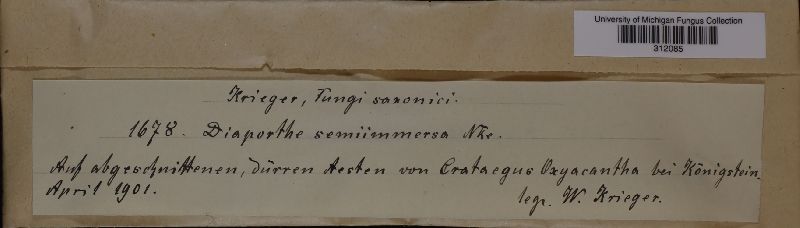 University of Michigan Fungus Collection
312085
Krieger, Fungi saxonici.
1678. Diaporthe semiimmersa Nke.
Auf abgeschnittenen, dürren Aesten von Crataegus Oxyacantha bei Königstein.
April 1901.
leg. W. Krieger.